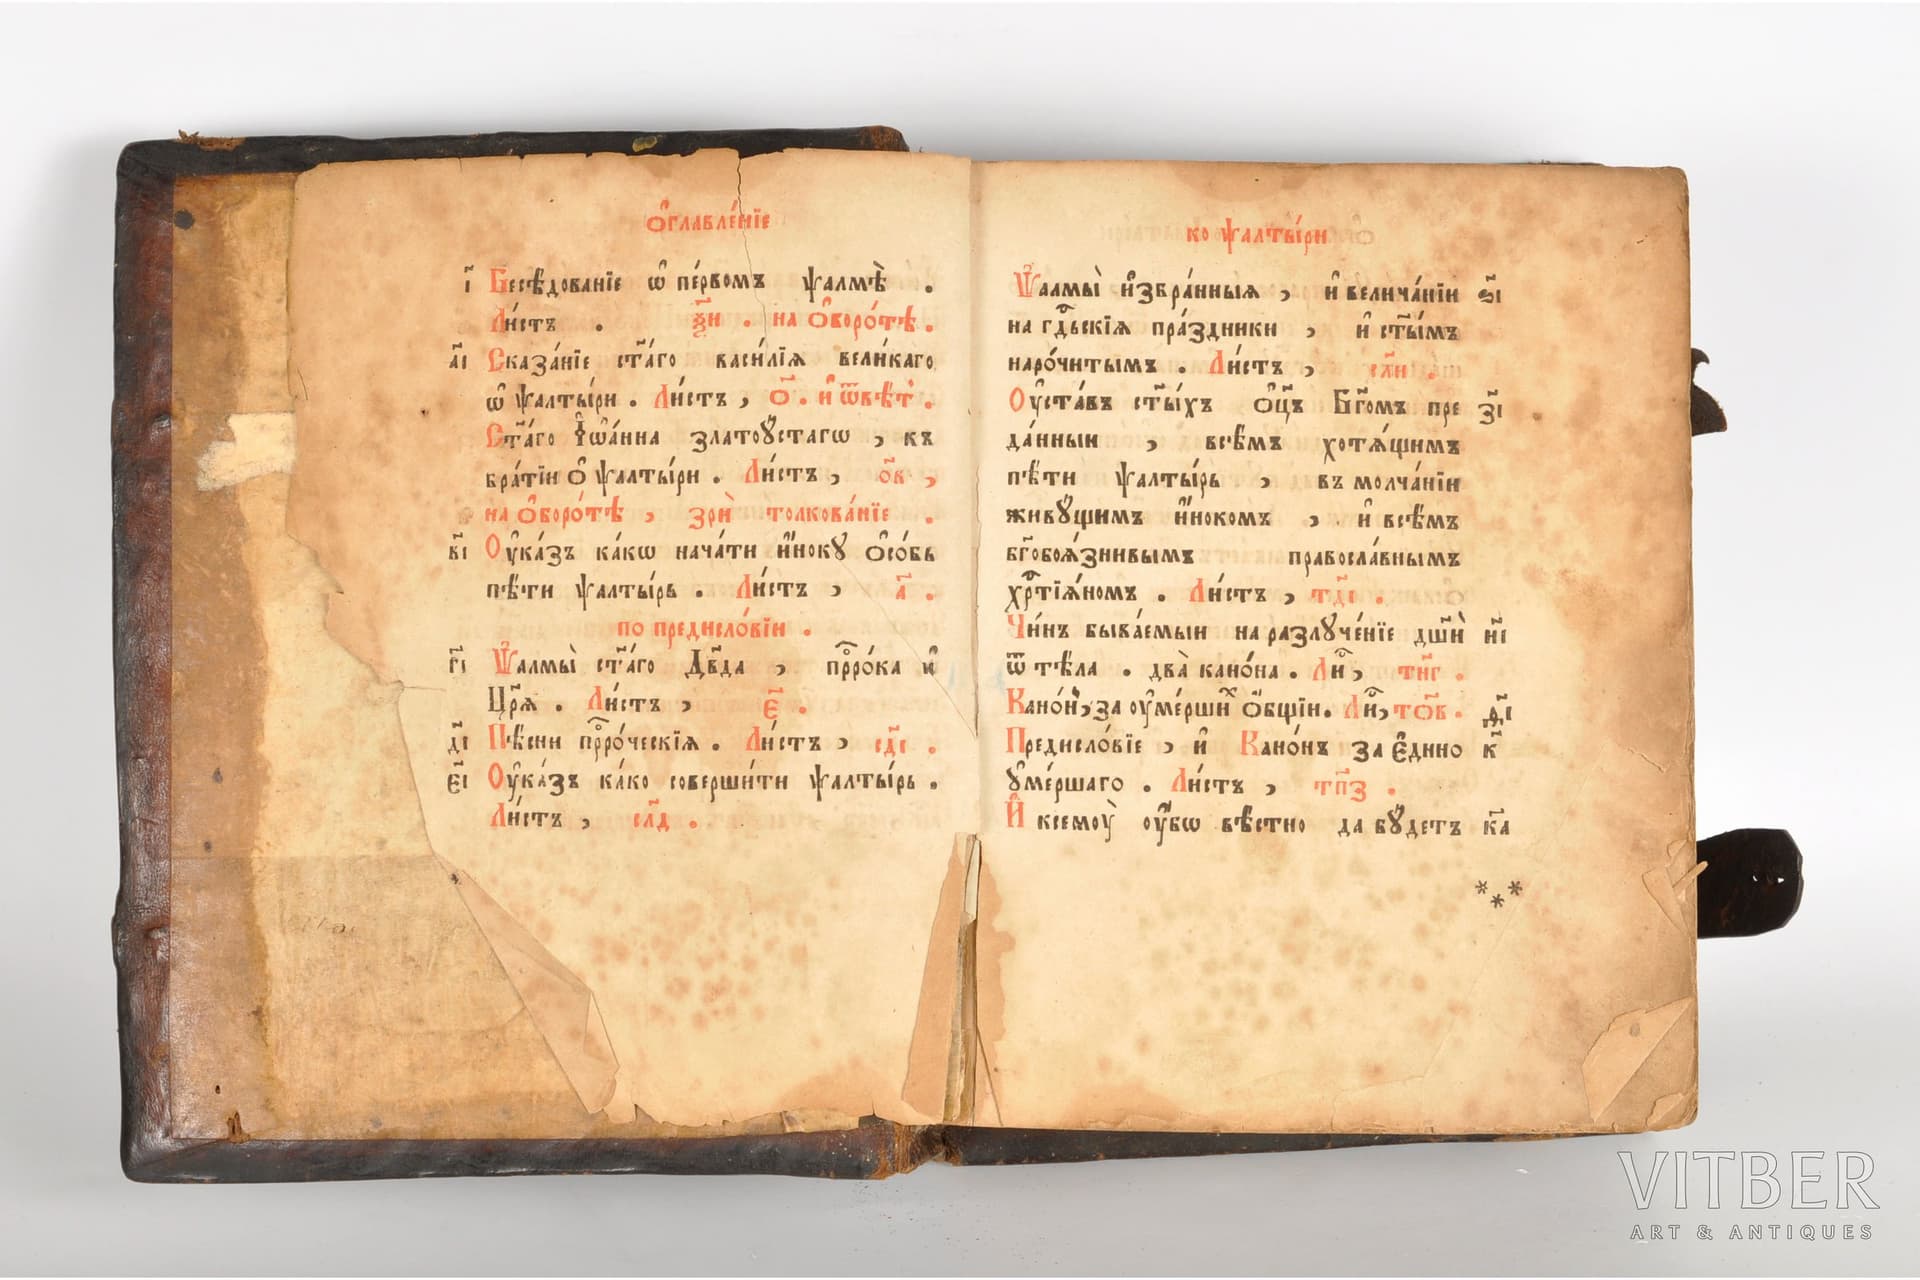 Ѻ҆главле́нїе
і҃ Бесѣ́дованїе ѡ҆ пе́рвомъ ѱалмѣ̀ .
Ли́стъ . ѯ҃и . на ѻ҆боро́тѣ .
а҃і Сказа́нїе ст҃а́го васи́лїѧ вели́каго
ѡ҆ ѱалты́ри . Ли́стъ , ѻ҃ . и҆ ѿвѣ́т .
Ст҃а́го І҆ѡа́нна златоꙋ́стагѡ , къ
бра́тїи ѻ҆ ѱалты́ри . Ли́стъ , ѻ҃в ,
на ѻ҆боро́тѣ , зрѝ толкова́нїе .
в҃і Оу҆ка́зъ ка́кѡ нача́ти и҆́нокꙋ ѻ҆со́бь
пѣ́ти ѱалты́рь . Ли́стъ , а҃ .
по предисло́вїи .
г҃і Ѱалмы̀ ст҃а́го Дв҃да , прⷪ҇ро́ка и҆
Цр҃ѧ̀ . Ли́стъ , є҃ .
д҃і Пѣ́сни прⷪ҇ро́ческїѧ . Ли́стъ , сд҃і .
є҃і Оу҆ка́зъ ка́ко соверши́ти ѱалты́рь .
Ли́стъ , сл҃д .
ко ѱалты́ри
Ѱалмы̀ и҆збра́нныѧ , и҆ велича́нїи ѕ҃і
на гдⷭ҇ьскїѧ пра́здники , и҆ ст҃ы́мъ
наро́читымъ . Ли́стъ , сл҃и .
Оу҆ста́въ ст҃ы́хъ ѻ҆ц҃ъ Бг҃омъ пре з҃і
да́нныи , всѣ́мъ хотѧ́щимъ
пѣ́ти ѱалты́рь , въ молча́нїи
живꙋ́щимъ и҆́нокомъ , и҆ всѣ́мъ
бг҃обоѧ́знивымъ правосла́внымъ
хрⷭ҇тїѧ́номъ . Ли́стъ , тд҃і .
Чи́нъ быва́емыи на разлꙋче́нїе дш҃ѝ и҃і
ѿ тѣ́ла . два̀ кано́на . Лиⷭ҇ , тн҃г .
Кано́нъ , за оу҆ме́ршиⷯ ѻ҆́бщїи . Лиⷭ҇ , то҃в . ѳ҃і
Предисло́вїе , и҆ Кано́нъ за є҆ди́но к҃
ꙋ҆ме́ршаго . Ли́стъ , тп҃з .
И҆ ксемоу̀ оу҆́бѡ вѣ́стно да бꙋ́детъ к҃а
* * *
VITBER
ART & ANTIQUES